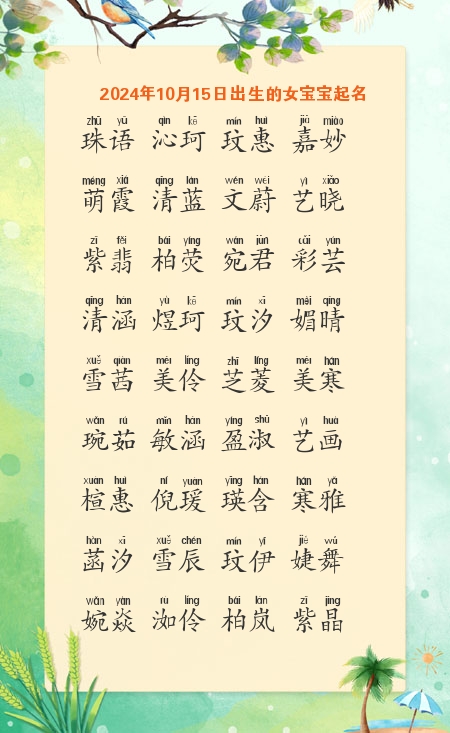 2024年10月15日出生的女宝宝起名
zhū yǔ qìn kē mín huì jiā miào
珠语 沁珂 玟惠 嘉妙
méng xiá qīng lán wén wèi yì xiǎo
萌霞 清蓝 文蔚 艺晓
zǐ fěi bǎi yíng wǎn jūn cǎi yún
紫翡 柏荧 宛君 彩芸
qīng hán yù kē mín xī mèi qíng
清涵 煜珂 玟汐 媚晴
xuě qiàn měi líng zhī líng měi hán
雪茜 美伶 芝菱 美寒
wǎn rú mǐn hán yíng shū yì huà
琬茹 敏涵 盈淑 艺画
xuān huì ní yuàn yīng hán hán yǎ
楦惠 倪瑗 瑛含 寒雅
hàn xī xuě chén mín yī jié wǔ
菡汐 雪辰 玟伊 婕舞
wǎn yàn rù líng bǎi lán zǐ jīng
婉焱 洳伶 柏岚 紫晶